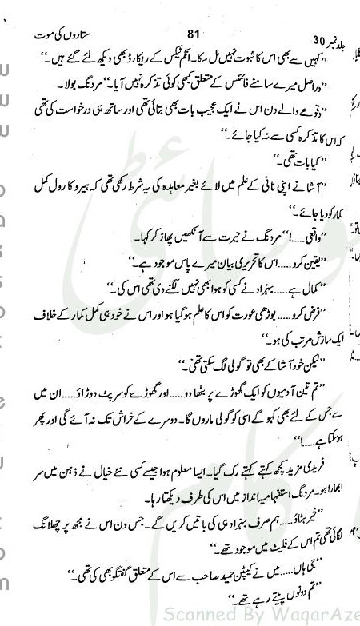 جلد نمبر 30
81
ستاروں کی موت
"کہیں سے بھی اس کا ثبوت نہیں مل سکا۔ انکم ٹیکس کے ریکارڈ بھی دیکھ لئے گئے ہیں۔"
"دراصل میرے سامنے فائنس کے متعلق کبھی کوئی تذکرہ نہیں آیا۔" مردنگ بولا۔
والے دن اس نے ایک عجیب بات بھی بتائی تھی اور ساتھ ہی درخواست کی تھی
کہ اس کا تذکرہ کسی سے نہ کیا جائے۔"
"کیا بات تھی۔"
نے اپنی نانی کے علم میں لائے بغیر معاہدہ کی یہ شرط رکھی تھی کہ ہیرو کا رول کمل
کمار کو دیا جائے۔"
"واقعی.....!" مردنگ نے حیرت سے آنکھیں پھاڑ کر کہا۔
"یقین کرو..... اس کا تحریری بیان میرے پاس موجود ہے۔"
"کمال ہے..... بہزاد نے کسی کو ہوا بھی نہیں لگنے دی تھی اس کی۔"
"فرض کرو..... بوڑھی عورت کو اس کا علم ہو گیا ہو اور اس نے خود ہی کمل کمار کے خلاف
ایک سازش مرتب کی ہو۔"
"لیکن خود آشا کے بھی تو گولی لگ سکتی تھی۔"
"تم تین آدمیوں کو ایک گھوڑے پر بٹھا دو..... اور گھوڑے کو سرپٹ دوڑاؤ..... ان میں
سے جس کے لئے بھی کہو گے اسی کو گولی ماروں گا۔ دوسرے کے خراش تک نہ آئے گی اور پھر
ہو سکتا ہے.....!"
فریدی مزید کچھ کہتے کہتے رک گیا۔ ایسا معلوم ہوا جیسے کسی نئے خیال نے ذہن میں سر
ابھارا ہو۔ مردنگ استفہامیہ انداز میں اس کی طرف دیکھتا رہا۔
"خیر ہٹاؤ..... ہم صرف بہزاد ہی کی باتیں کریں گے۔ جس دن اس نے مجھ پر چھلانگ
لگائی تھی تم اس کے فلیٹ میں موجود تھے۔"
"جی ہاں..... میں نے کیپٹن حمید صاحب سے اس کے متعلق گفتگو بھی کی تھی۔"
"تم دونوں پیتے رہے تھے۔"
Scanned By WaqarAze